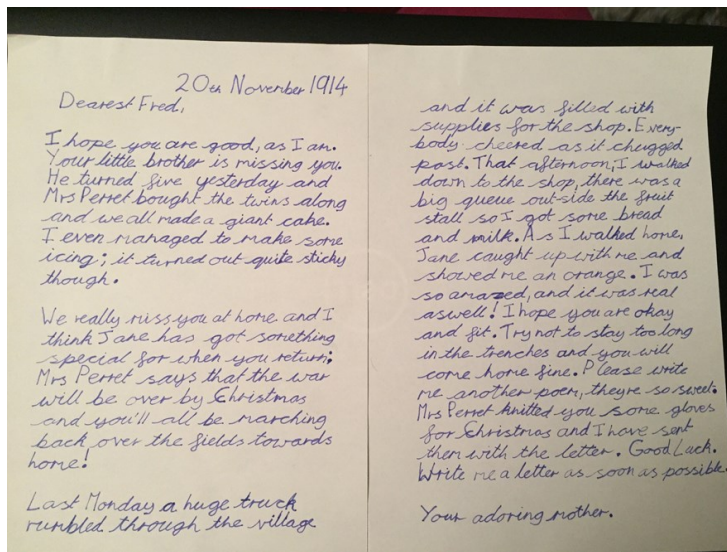 20th November 1914
Dearest Fred,
I hope you are good, as I am.
Your little brother is missing you.
He turned five yesterday and
Mrs Perret bought the twins along
and we all made a giant cake.
I even managed to make some
icing; it turned out quite sticky
though.
We really miss you at home and I
think Jane has got something
special for when you return;
Mrs Perret says that the war
will be over by Christmas
and you'll all be marching
back over the fields towards
home!
Last Monday a huge truck
rumbled through the village
and it was filled with
supplies for the shop. Every-
body cheered as it chugged
past. That afternoon, I walked
down to the shop, there was a
big queue out-side the fruit
stall so I got some bread
and milk. As I walked home,
Jane caught up with me and
showed me an orange. I was
so amazed, and it was real
aswell! I hope you are okay
and fit. Try not to stay too long
in the trenches and you will
come home fine. Please write
me another poem, theyre so sweet.
Mrs Perret knitted you some gloves
for Christmas and I have sent
them with the letter. Good Luck.
Write me a letter as soon as possible.
Your adoring mother.